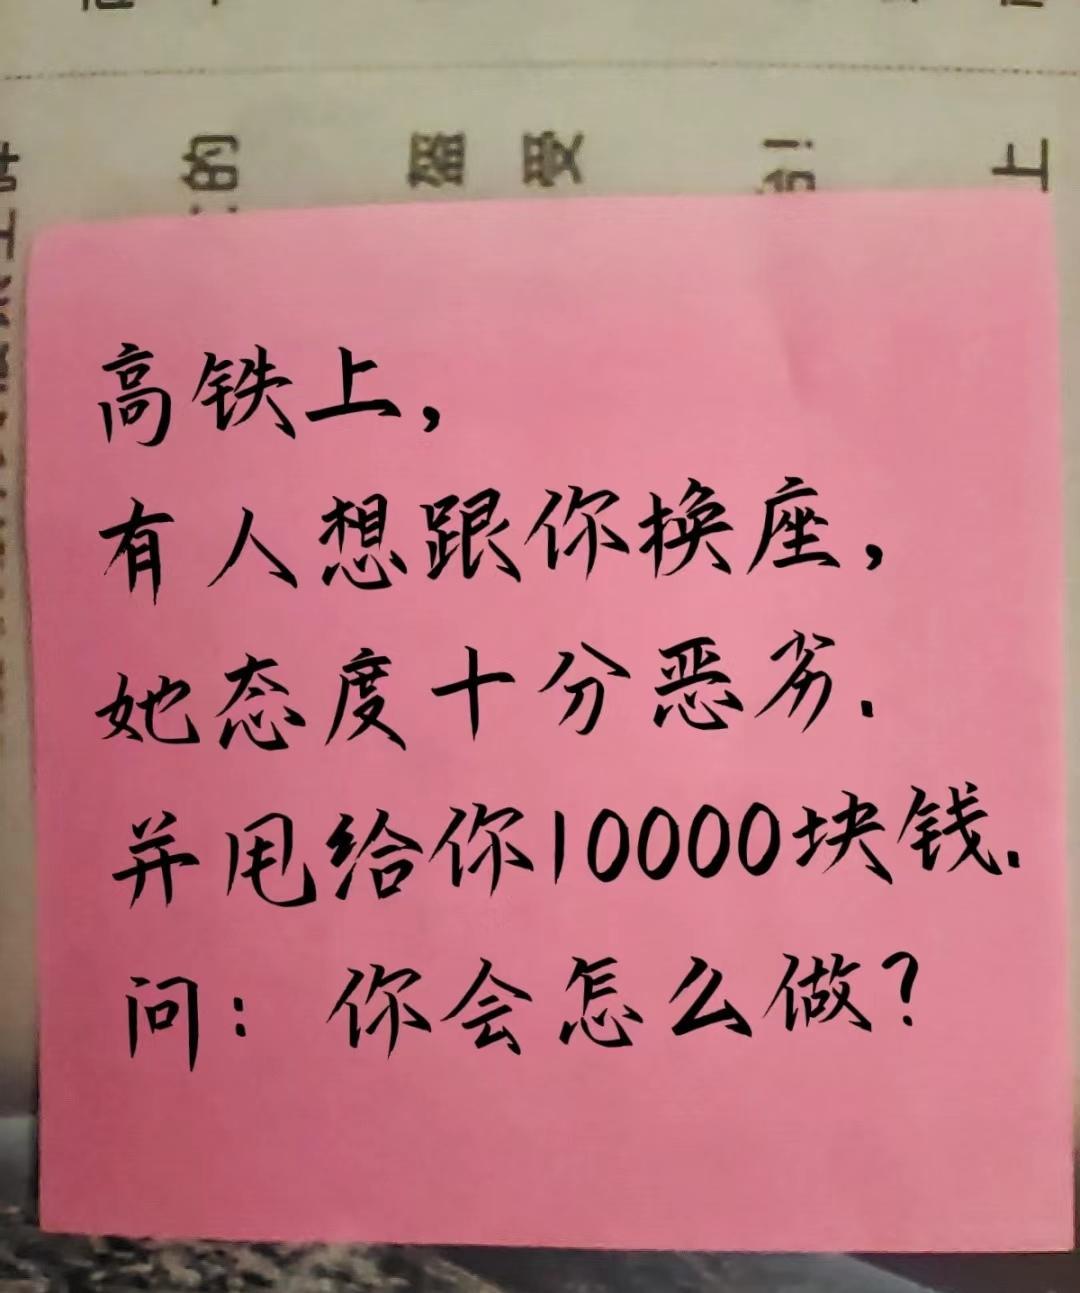 的
器
受
!
上
高铁上，
有人想跟你换座，
她态度十分恶劣.
并甩给你10000块钱.
问：你会怎么做？